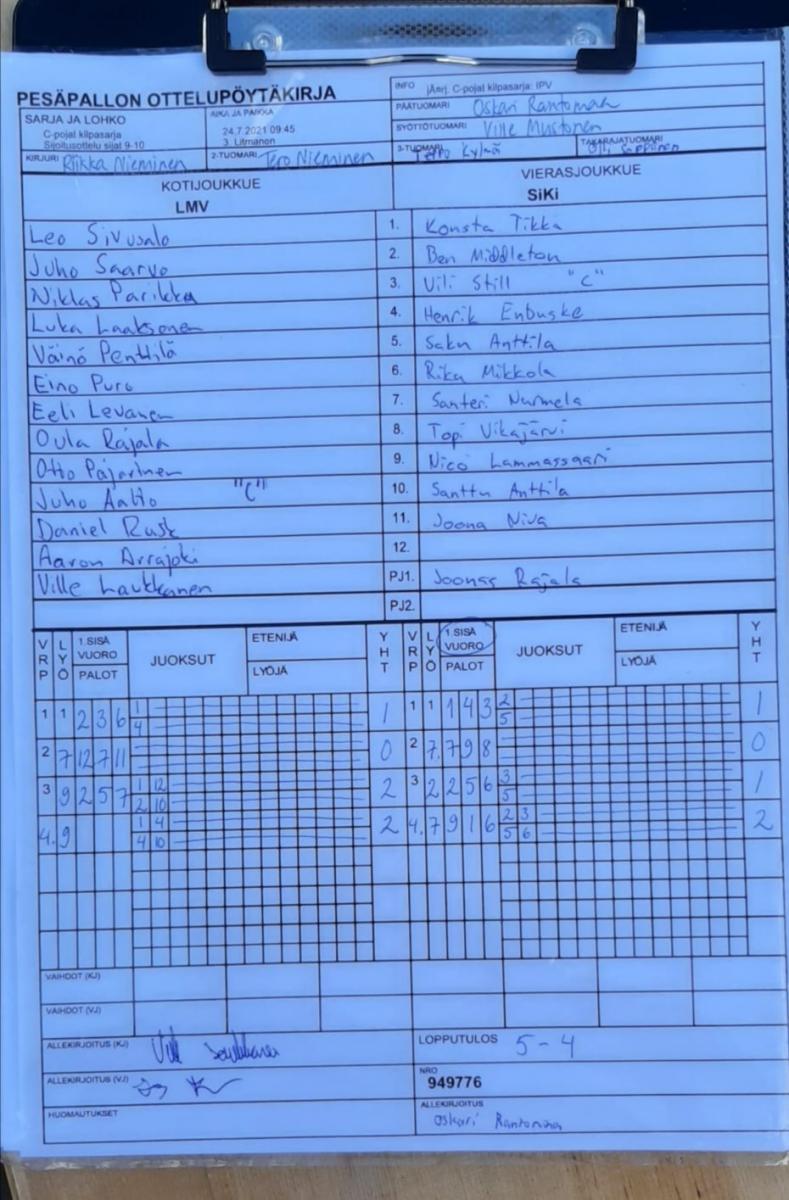 PESÄPALLON OTTELUPÖYTÄKIRJA
INFO jÄnrj. C-pojat kilpasarja: IPV
PÄÄTUOMARI Oskari Rantomaa
SARJA JA LOHKO
C-pojat kilpasarja
Sijoitusottelu sijat 9-10
AIKA JA PAIKKA
24.7.2021 09:45
3. Litmanen
SYÖTTÖTUOMARI Ville Mustonen
KIRJURI Riikka Nieminen 2-TUOMARI Tero Nieminen 3-TUOMARI Kylmä TAKARAJATUOMARI
KOTIJOUKKUE VIERASJOUKKUE
LMV SiKi
Leo Sivusalo 1. Konsta Tikka
Juho Saarvo 2. Ben Middleton
Niklas Parikka 3. Vili Still "C"
Luka Laaksonen 4. Henrik Enbuske
Väinö Penttilä 5. Saku Anttila
Eino Puro 6. Riku Mikkola
Eeli Levanen 7. Santeri Nurmela
Oula Rajala 8. Topi Vikajärvi
Otto Pajarinen 9. Nico Lammassaari
Juho Aalto "C" 10. Santtu Anttila
Daniel Rusk 11. Joona Niva
Aaron Arrajoki 12.
Ville Laukkanen PJ1. Joonas Rajala
PJ2.
VRP LYÖ 1.SISÄ VUORO PALOT JUOKSUT ETENIJÄ LYÖJÄ YHT VRP LYÖ 1.SISÄ VUORO PALOT JUOKSUT ETENIJÄ LYÖJÄ YHT
1 1 2 3 6 1 4 1 1 1 1 4 3 2 5 1
2 7 12 7 11 0 2 7. 7 9 8 0
3 9 2 5 7 1 12 2 10 2 3 2 2 5 6 3 5 1
4. 9 1 4 4 10 2 4. 7 9 1 6 2 3 5 6 2
VAIHDOT (KJ)
VAIHDOT (VJ)
ALLEKIRJOITUS (KJ) LOPPUTULOS 5 - 4
ALLEKIRJOITUS (VJ) NRO
949776
HUOMAUTUKSET ALLEKIRJOITUS
Oskari Rantomaa